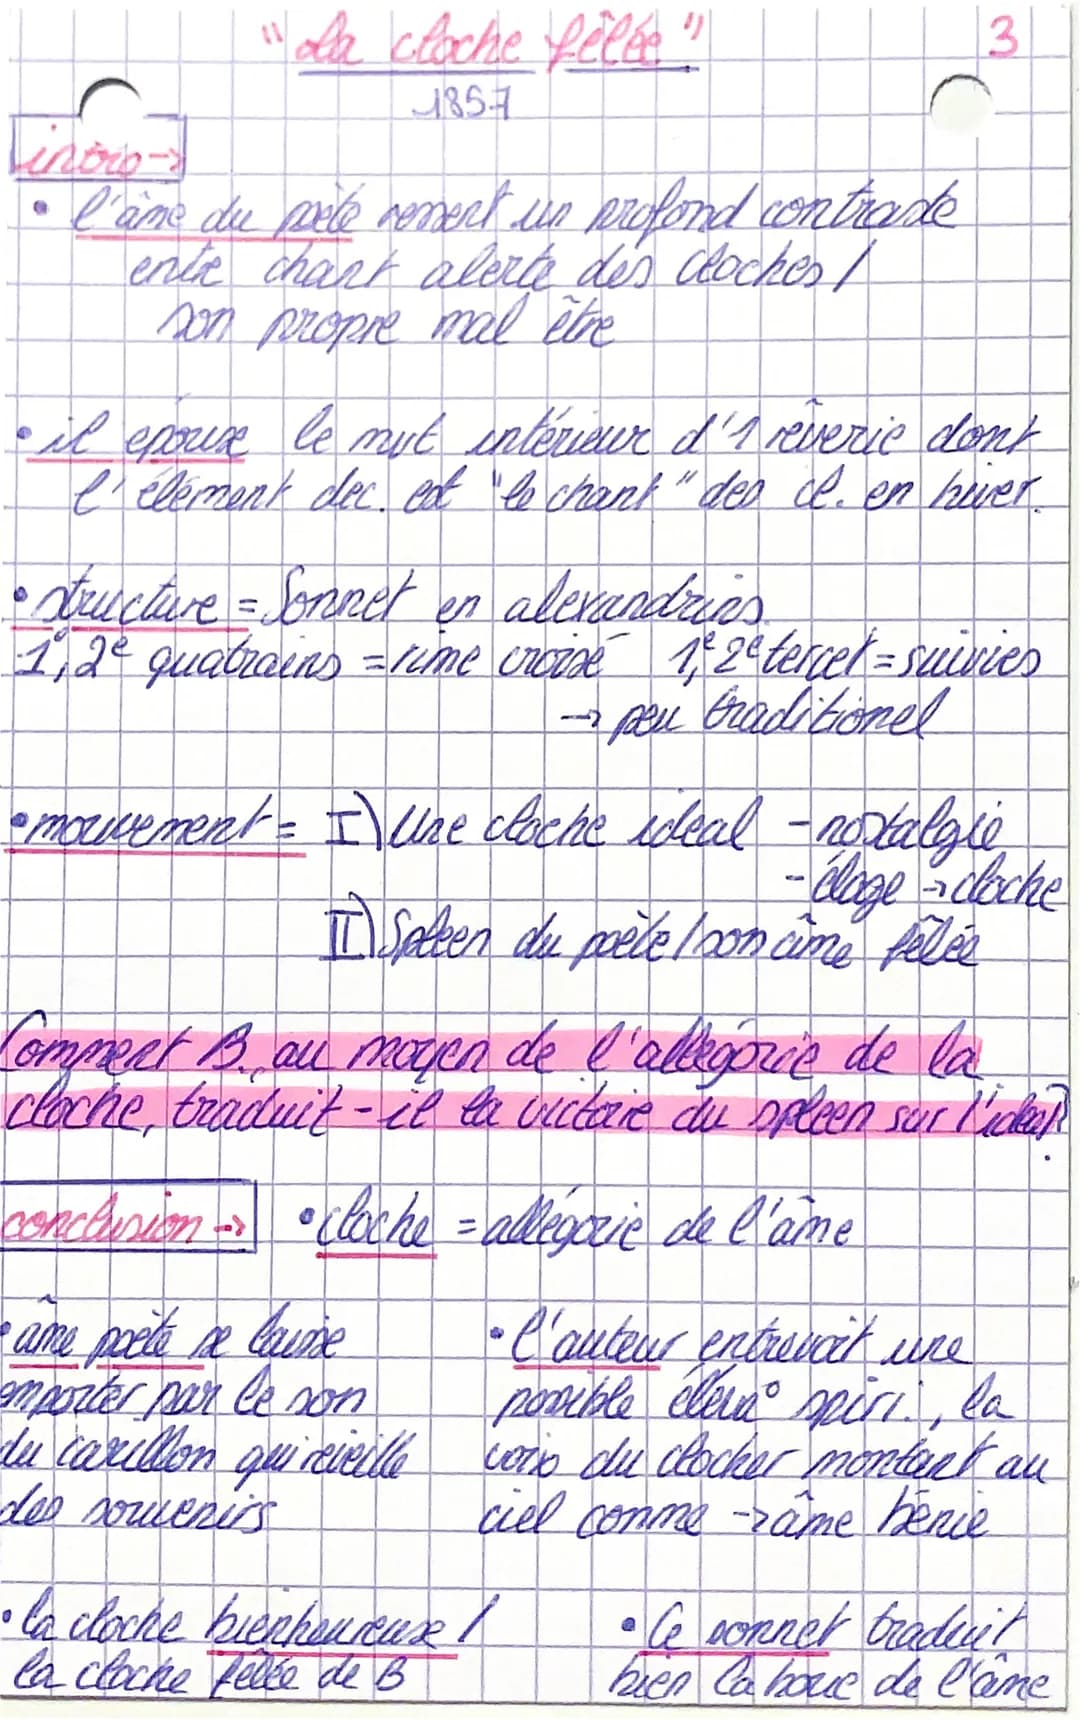 "La cloche fêlée" 3
1857
intro →
• l'âme du poète ressent un profond contraste
entre chant alerte des cloches /
son propre mal être
• il epouse le mvt intérieur d'1 rêverie dont
l'élément dec. est "le chant" des cl. en hiver.
• structure = Sonnet en alexandrins.
1e, 2e quatrains = rime croisé 1e, 2e tercet = suivies
→ peu traditionel
• mouvement = I) Une cloche ideal - nostalgie
- éloge → cloche
II) Spleen du poète / son âme fêlée
Comment B., au moyen de l'allégorie de la
cloche, traduit-il la victoire du spleen sur l'ideal?
conclusion → • cloche = allégorie de l'âme
• âme poète se laisse
emporter par le son
du carillon qui réveille
des souvenirs
• l'auteur entrevoit une
possible éléva° spiri., la
voix du clocher montant au
ciel comme → âme bénie
• la cloche bienheureuse /
la cloche fêlée de B
• Ce sonnet traduit
bien la boue de l'âme